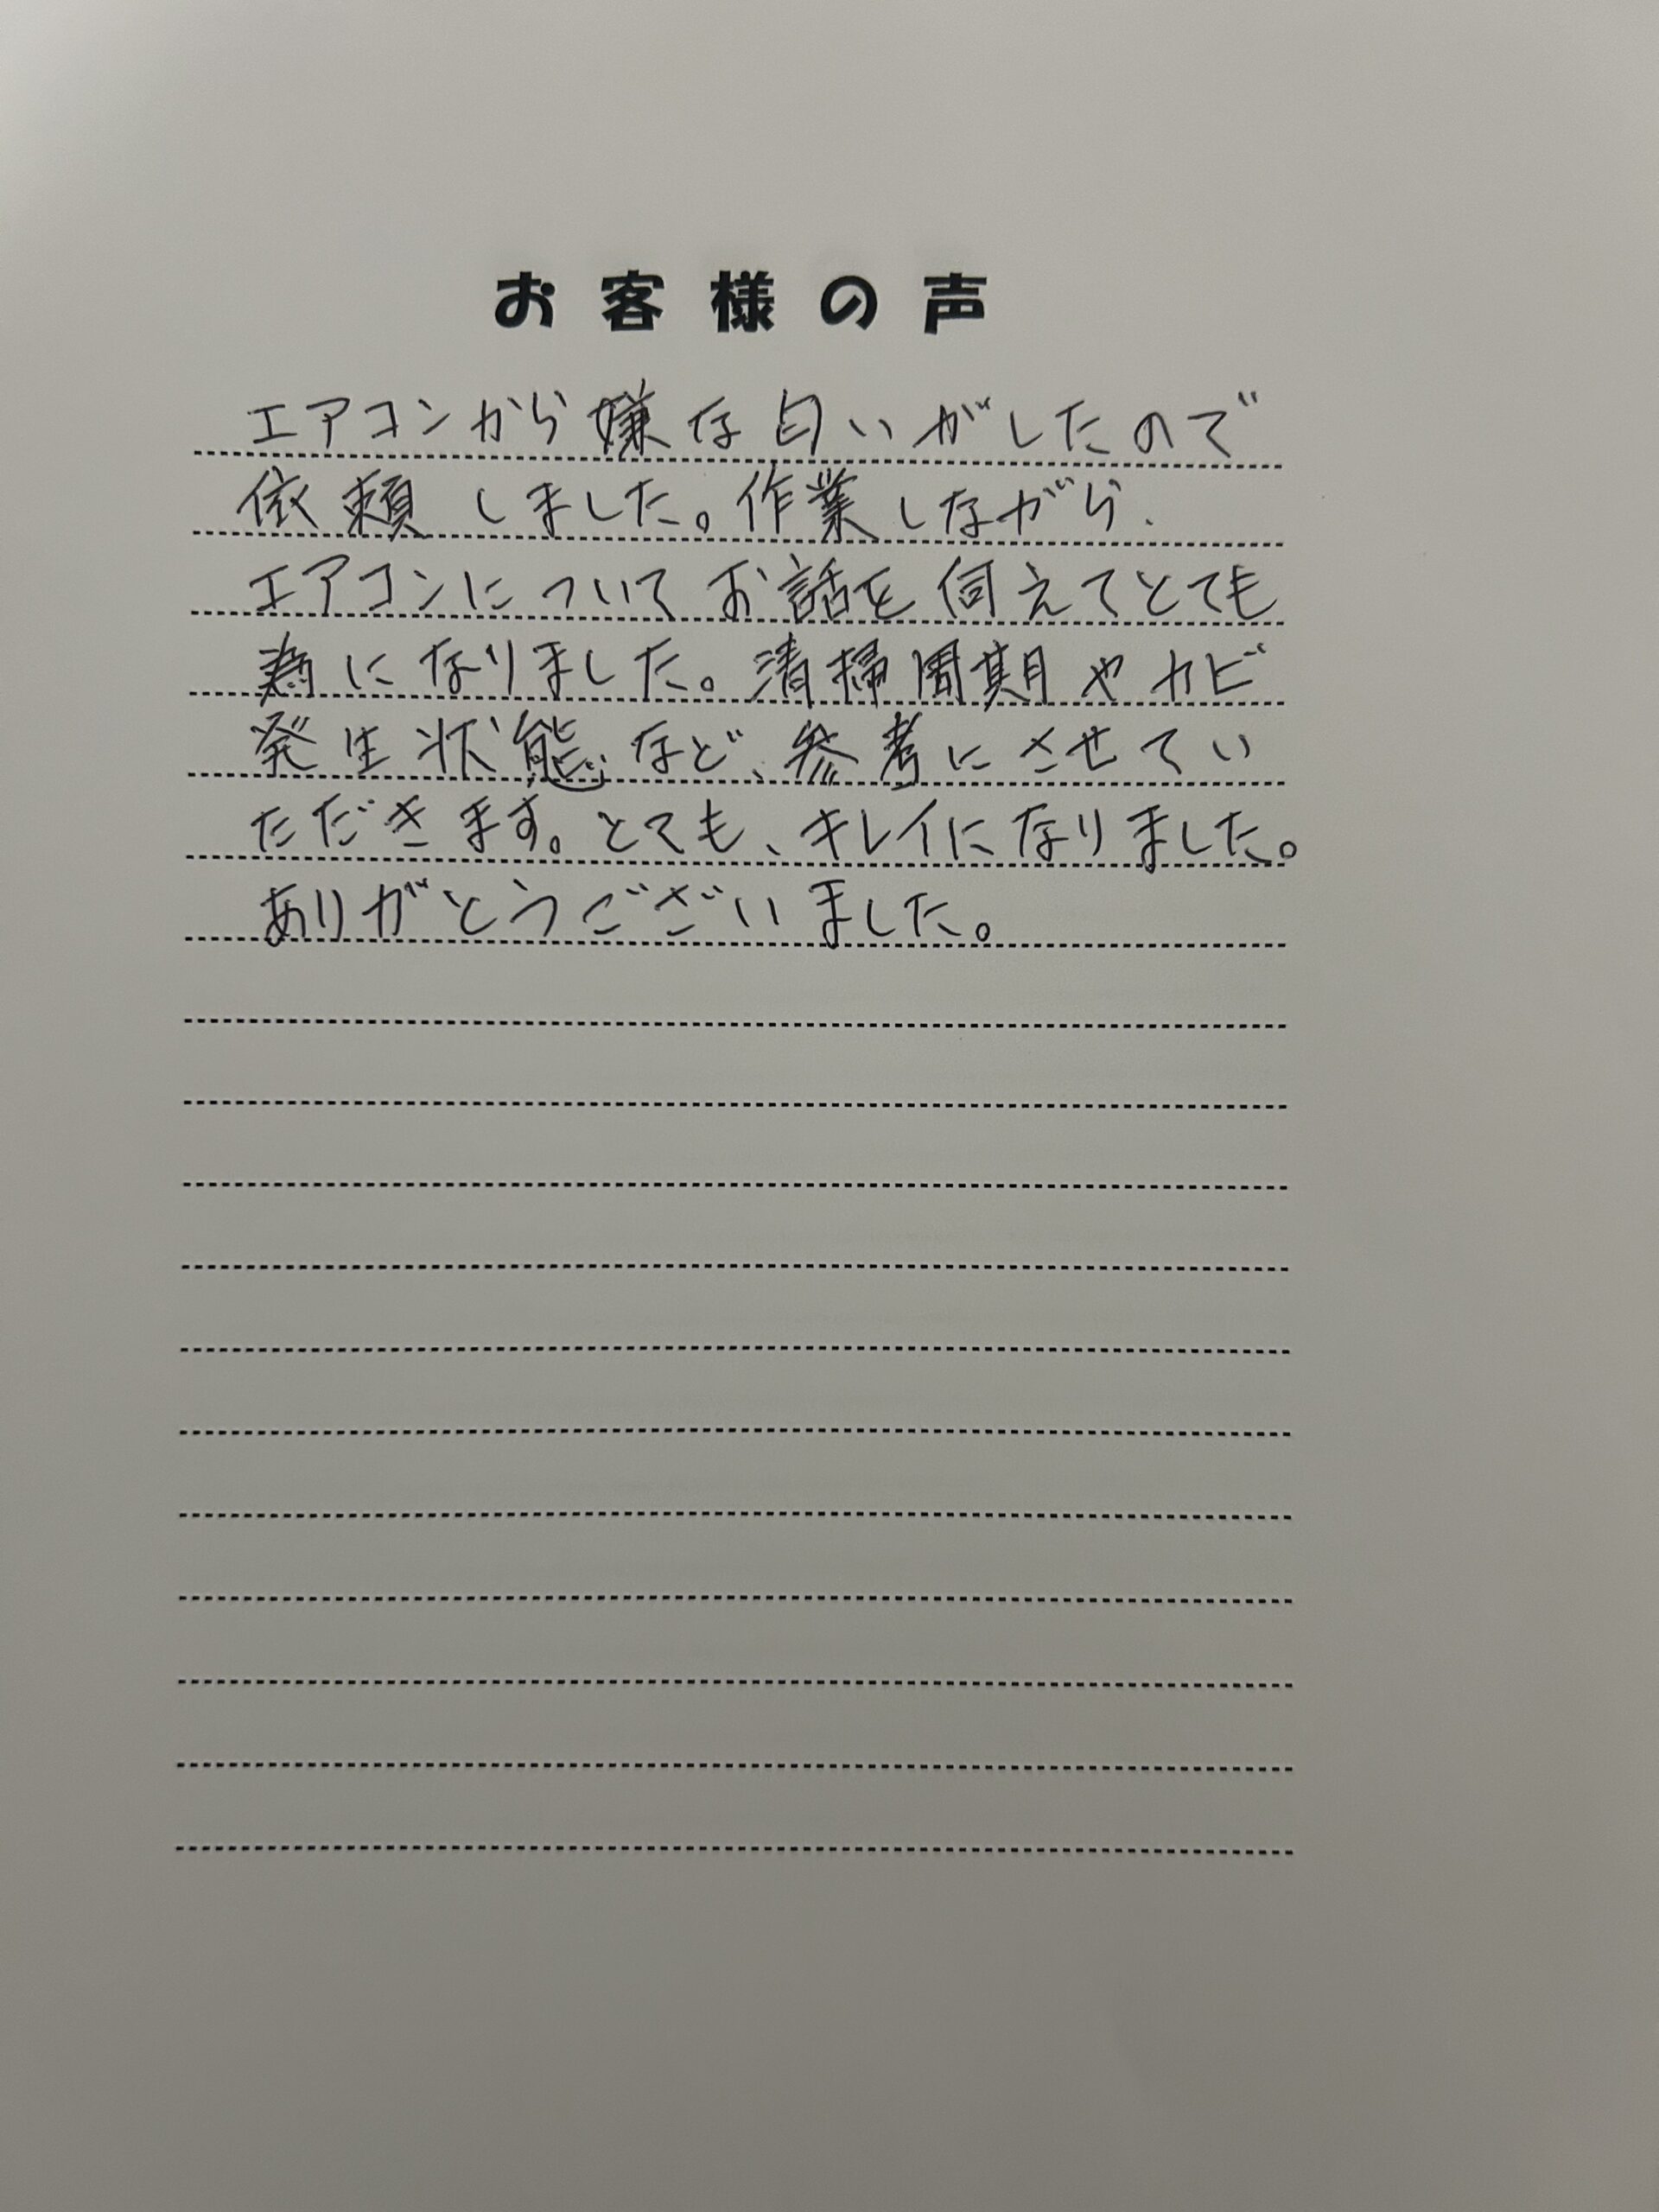 お客様の声
エアコンから嫌な匂いがしたので
依頼しました。作業しながら、
エアコンについてお話を伺えてとても
為になりました。清掃周期やカビ
発生状態など、参考にさせてい
ただきます。とても、キレイになりました。
ありがとうございました。